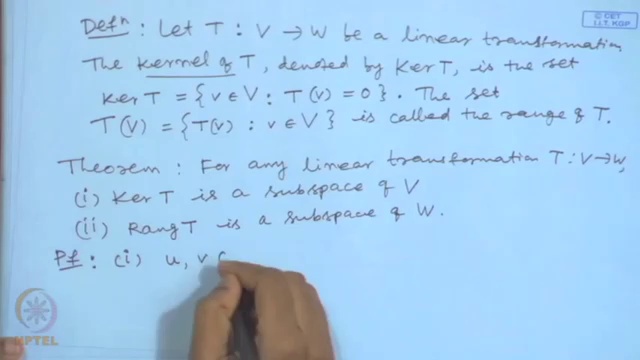 © CET
I.I.T. KGP
Defⁿ : Let T : V → W be a linear transformation
The kernel of T, denoted by Ker T, is the set
Ker T = {v ∈ V : T(v) = 0}. The set
T(V) = {T(v) : v ∈ V} is called the range of T.
Theorem : For any linear transformation T : V → W,
(i) Ker T is a subspace of V
(ii) Rang T is a subspace of W.
Pf : (i) u, v
NPTEL